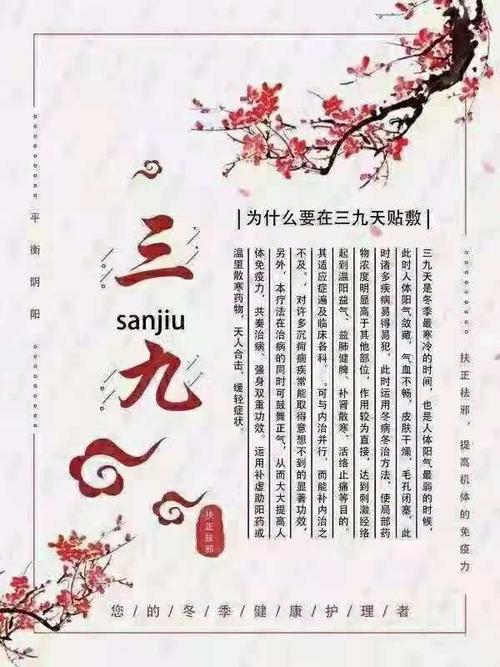 三
sanjiu
九
扶正祛邪
平衡阴阳
为什么要在三九天贴敷
三九天是冬季最寒冷的时间，也是人体阳气最弱的时候，
此时人体阳气敛藏，气血不畅，皮肤干燥，毛孔闭塞，此
时诸多疾病易得易犯，此时运用冬病冬治方法，使局部药
物浓度明显高于其他部位，作用较为直接，达到刺激经络
起到温阳益气、益肺健脾、补肾散寒、活络止痛等目的。
其适应症遍及临床各科，可与内治并行，而能补内治之
不及、，对许多沉疴痼疾常能取得意想不到的显著功效，
另外，本疗法在治病的同时可鼓舞正气，从而大大提高人
体免疫力，共奏治病、强身双重功效。运用补虚助阳药或
温里散寒药物，天人合击，缓轻症状。
扶正祛邪，提高机体的免疫力
您的冬季健康护理者